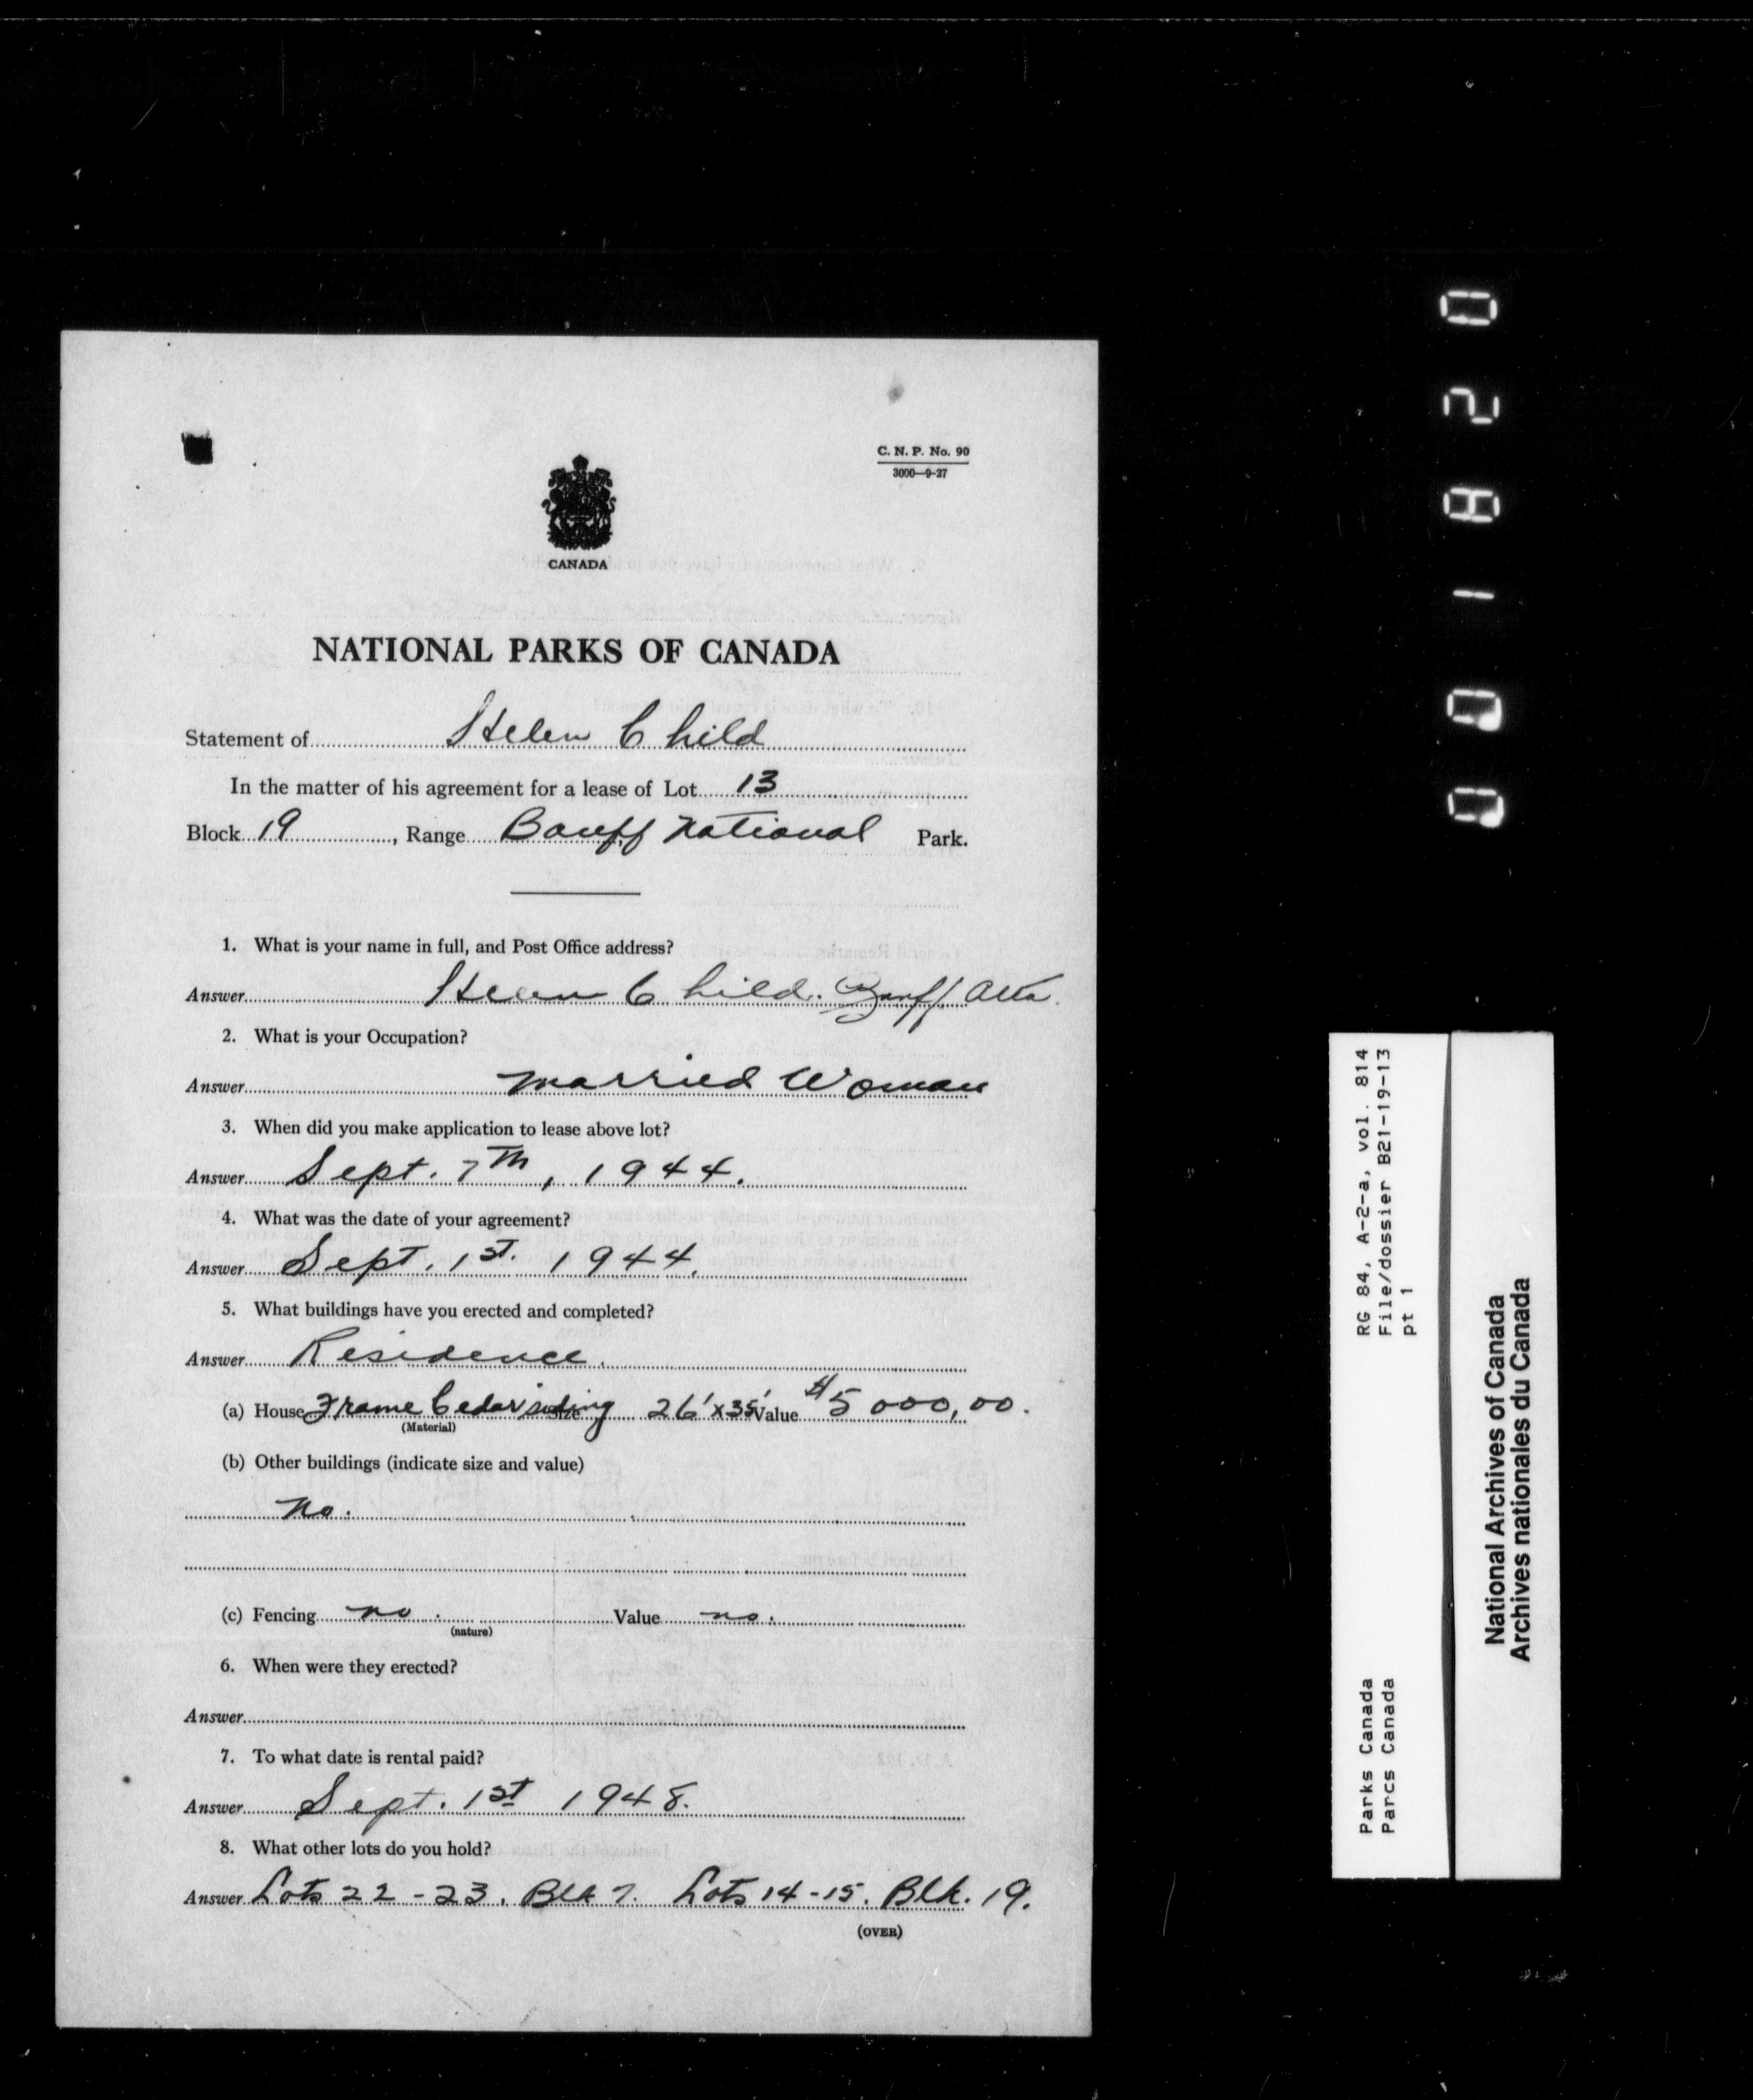 C. N. P. No. 90
3000—9-27
CANADA
NATIONAL PARKS OF CANADA
Statement of Helen Child
In the matter of his agreement for a lease of Lot 13
Block 19, Range Banff National Park.
1. What is your name in full, and Post Office address?
Answer Helen Child. Banff Alta.
2. What is your Occupation?
Answer Married Woman
3. When did you make application to lease above lot?
Answer Sept. 7th, 1944.
4. What was the date of your agreement?
Answer Sept. 1st. 1944.
5. What buildings have you erected and completed?
Answer Residence.
(a) House Frame Cedar siding Size 26'x35' Value $5000,00.
(Material)
(b) Other buildings (indicate size and value)
No.
(c) Fencing no. Value no.
(nature)
6. When were they erected?
Answer
7. To what date is rental paid?
Answer Sept. 1st 1948.
8. What other lots do you hold?
Answer Lots 22-23. Blk 7. Lots 14-15. Blk. 19.
(OVER)
RG 84, A-2-a, vol. 814
File/dossier B21-19-13
pt 1
Parks Canada
Parcs Canada
National Archives of Canada
Archives nationales du Canada